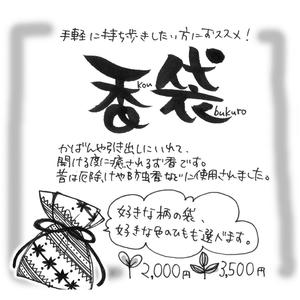 手軽に持ち歩きしたい方におススメ!
香袋
kou
bukuro
かばんや引き出しにいれて、
開ける度に癒されるお香です。
昔は厄除けや防虫香などに使用されました。
好きな柄の袋、
好きな色のひもも選べます。
2,000円 3,500円